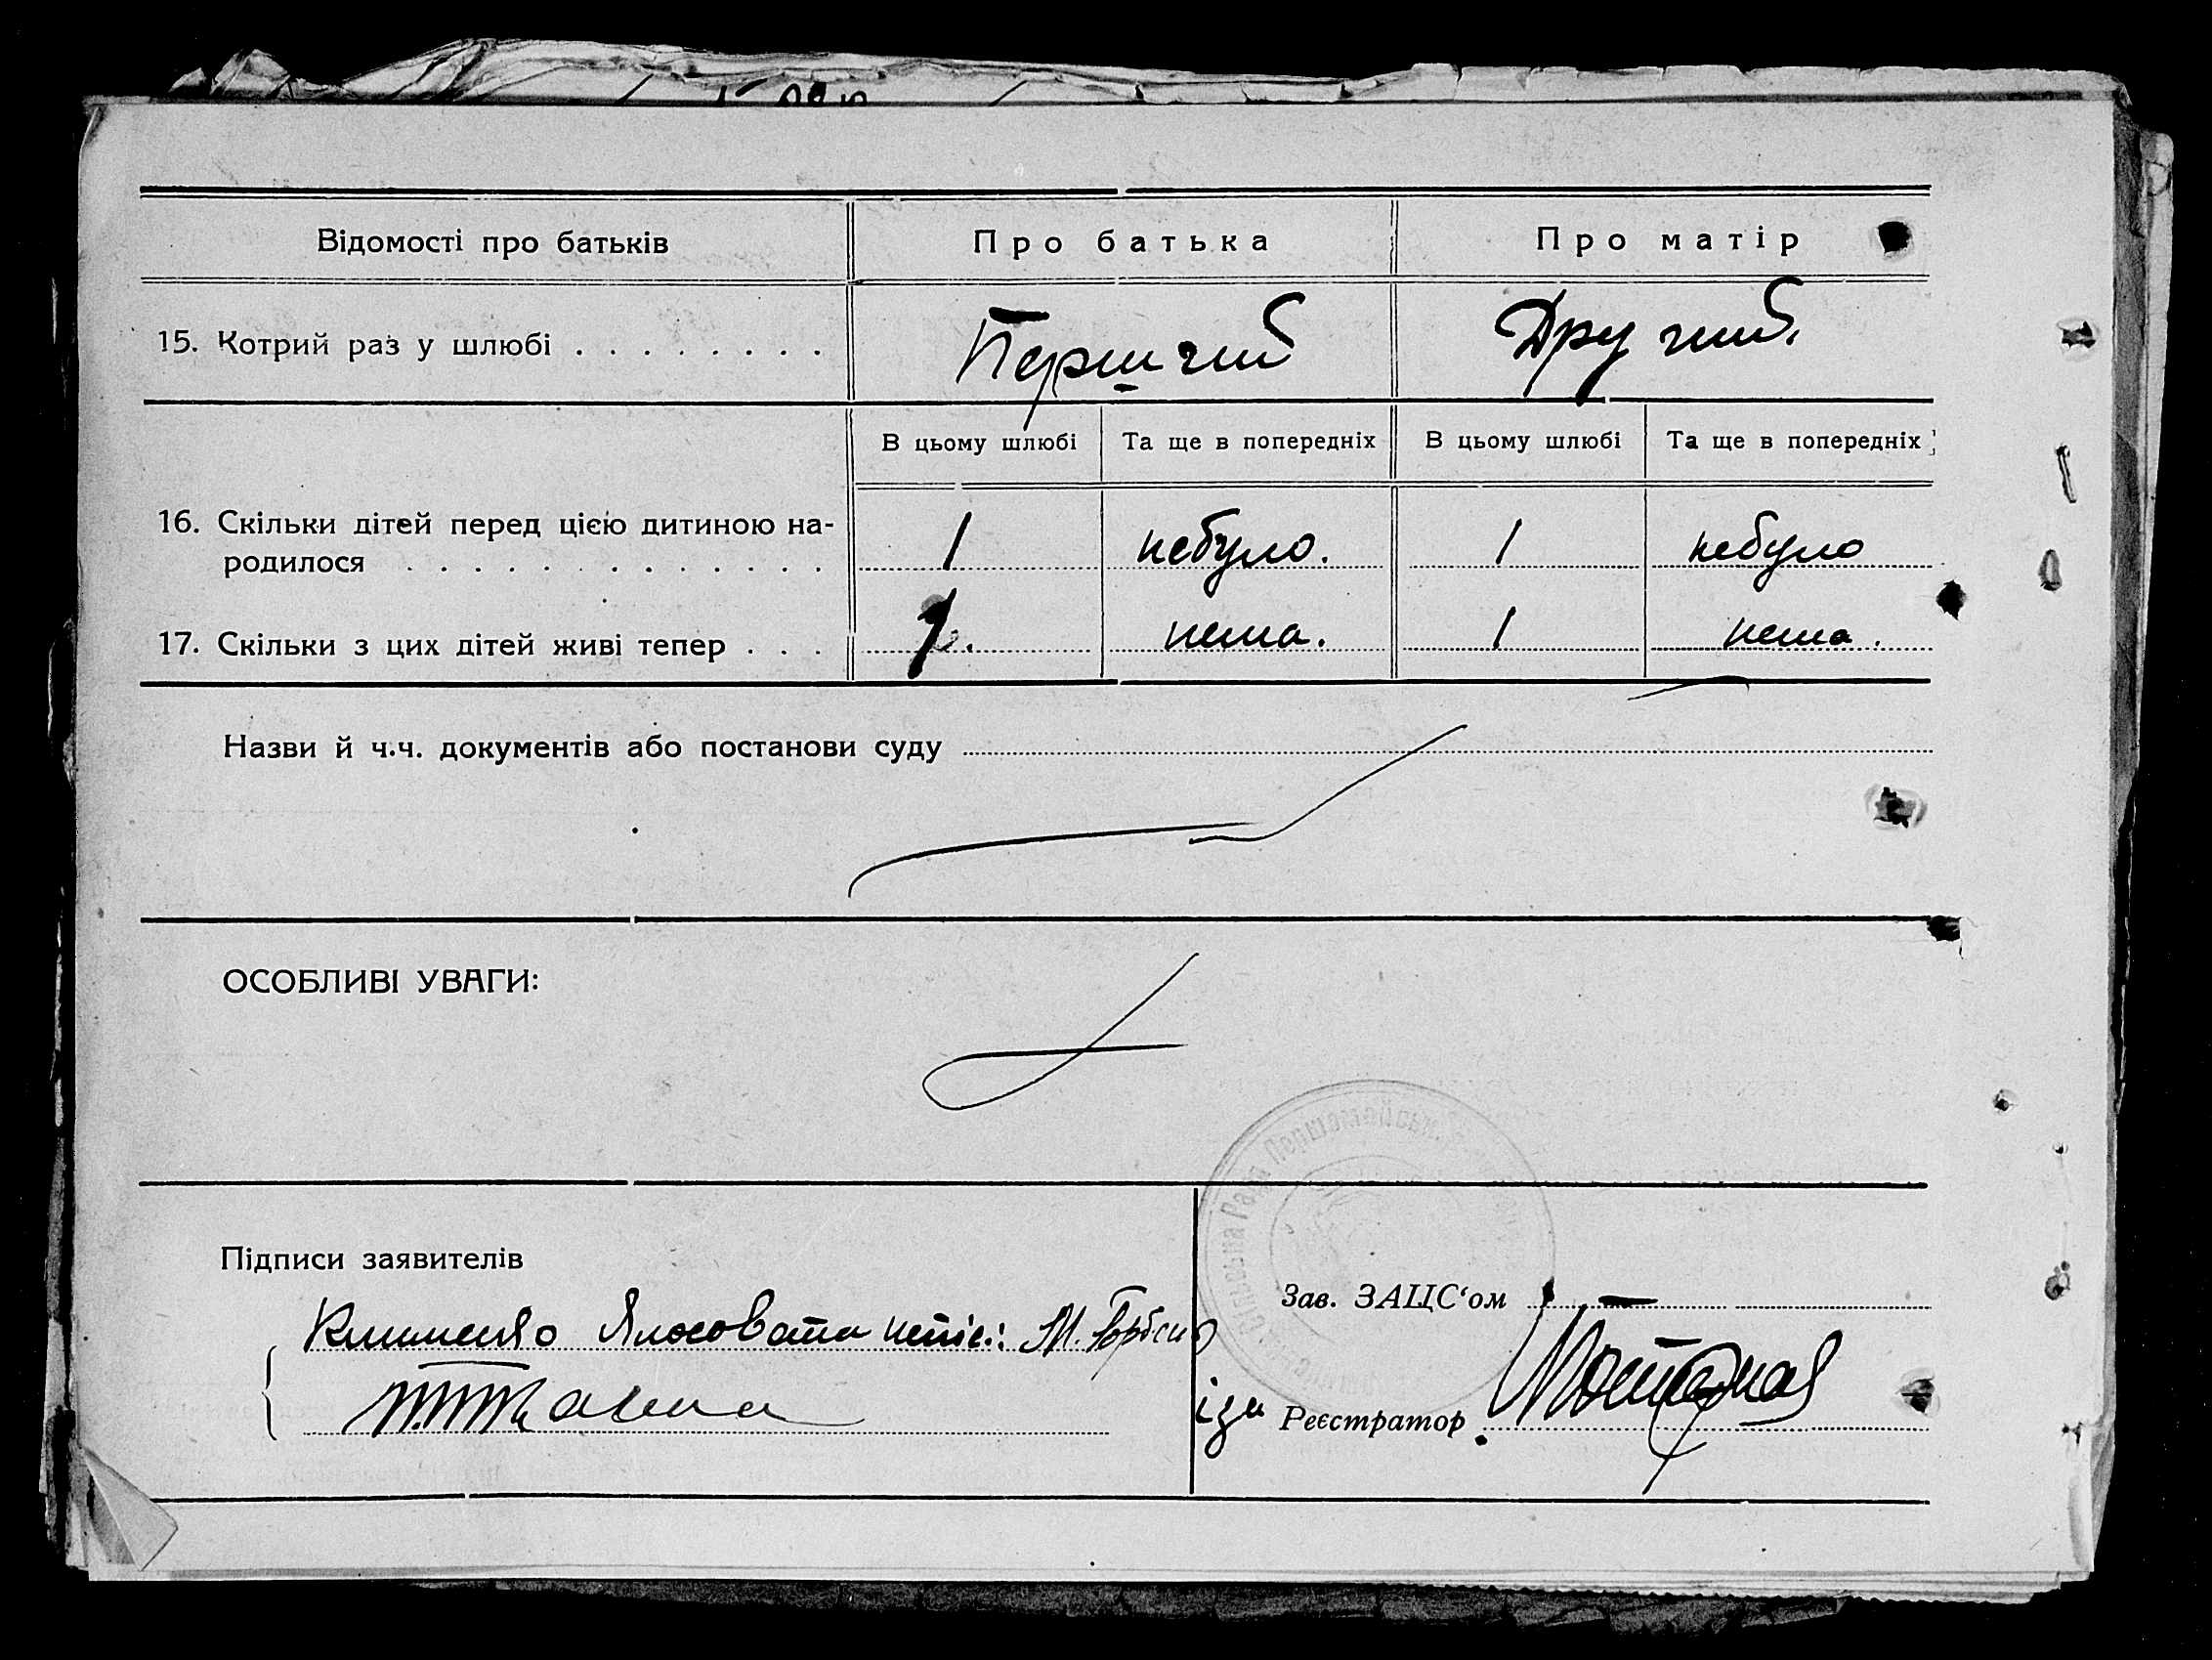 Відомості про батьків
Про батька
Про матір
15. Котрий раз у шлюбі . . . . . . . .
Перший
Другий.
В цьому шлюбі
Та ще в попередніх
В цьому шлюбі
Та ще в попередніх
16. Скільки дітей перед цією дитиною на-
родилося . . . . . . . . . . . . .
1
небуло.
1
небуло
17. Скільки з цих дітей живі тепер . . .
1.
нема.
1
нема.
Назви й ч.ч. документів або постанови суду
ОСОБЛИВІ УВАГИ:
Сільська Рада Першотравн
Підписи заявителів
Клименко
Зав. ЗАЦС‘ом
Реєстратор